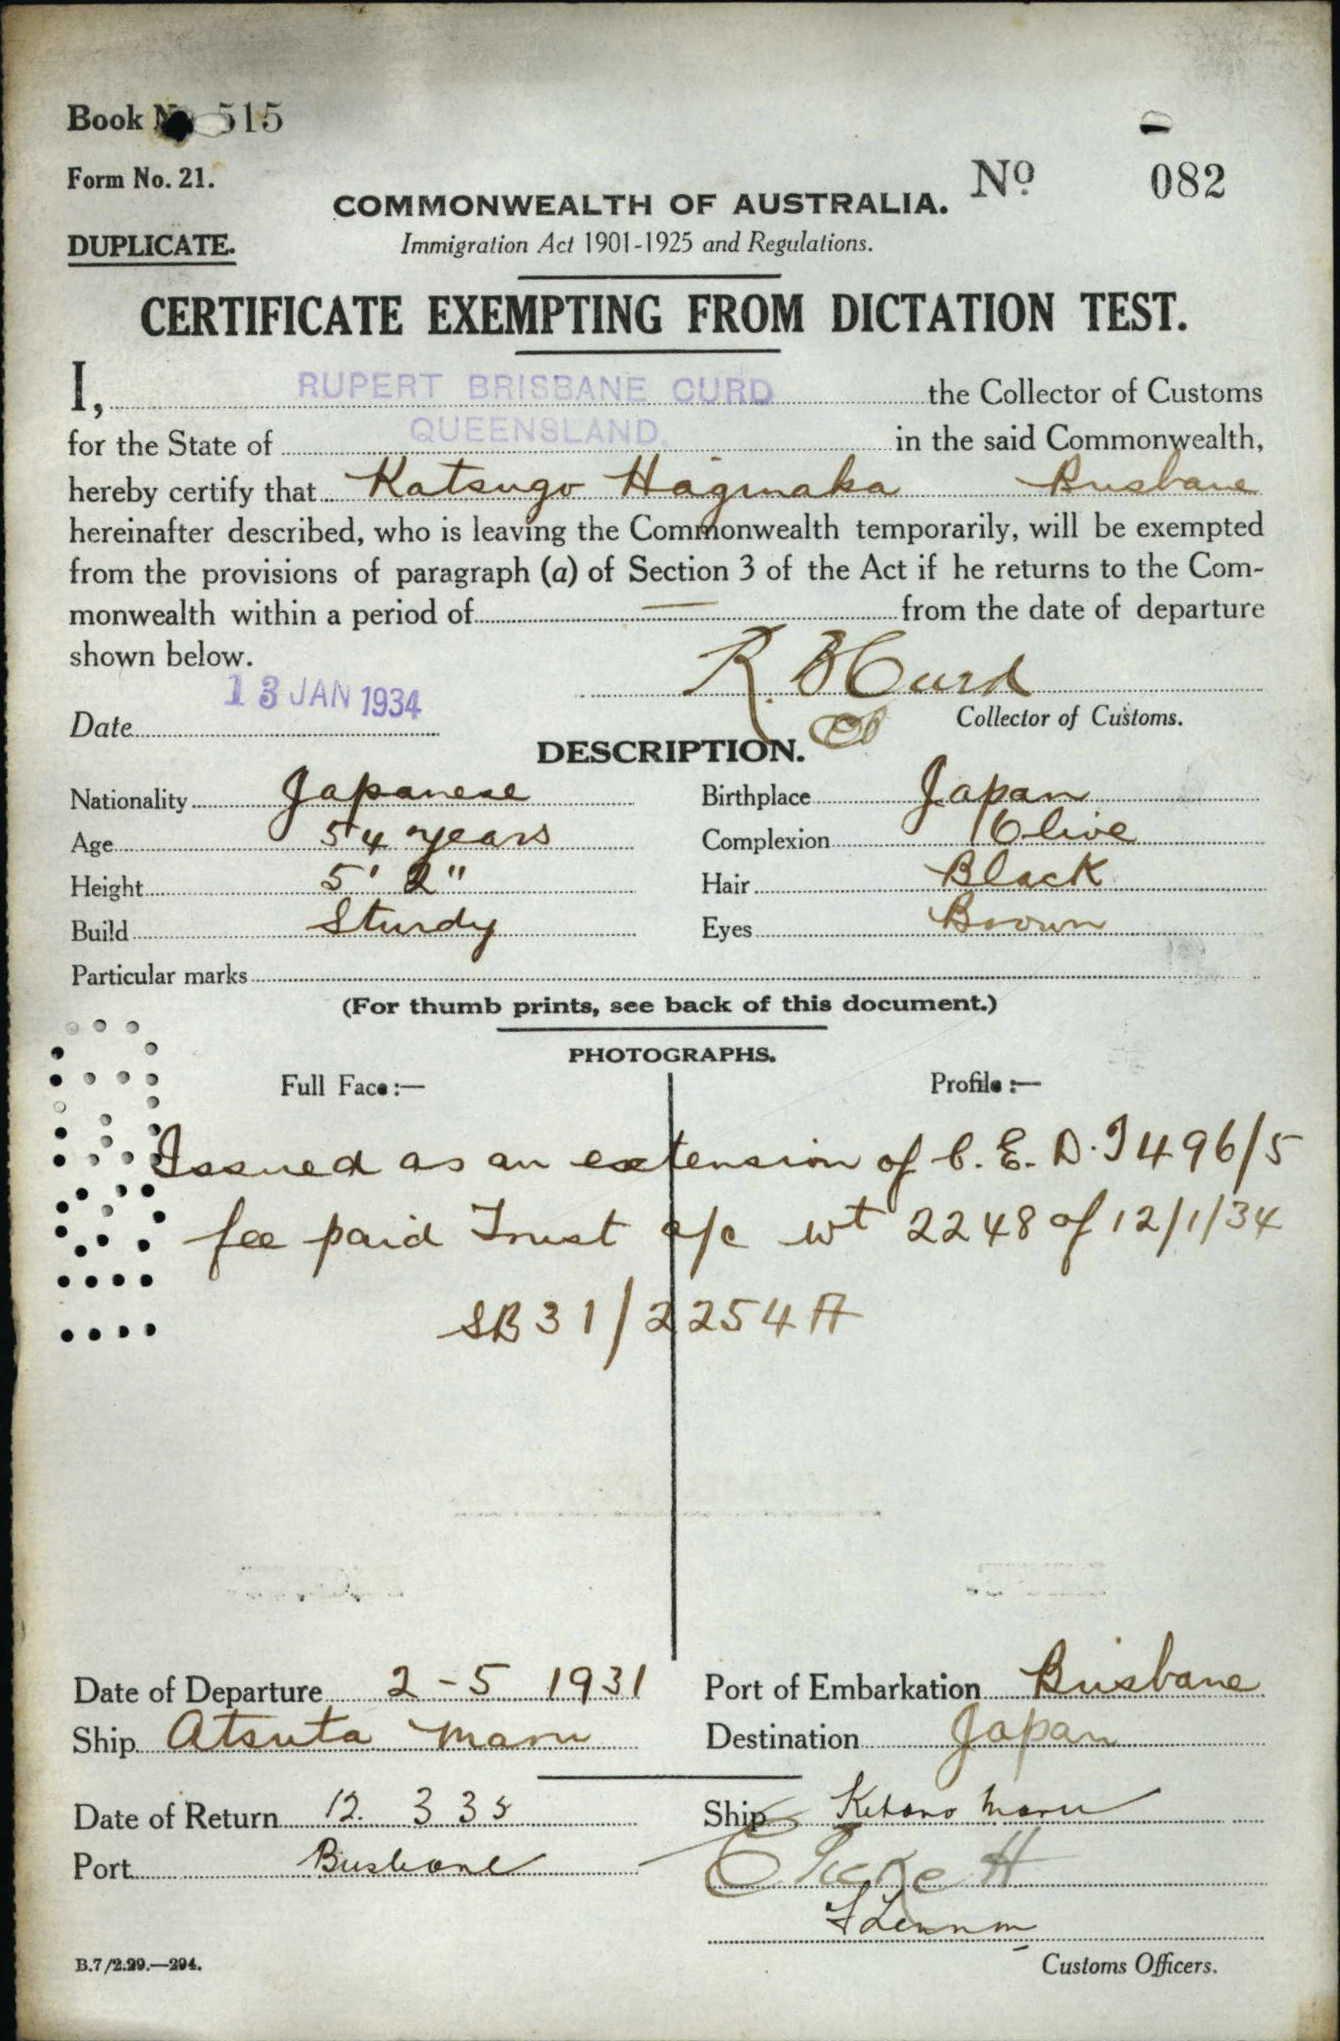 Book No. 515
Form No. 21.
Nº 082
COMMONWEALTH OF AUSTRALIA.
DUPLICATE.
Immigration Act 1901-1925 and Regulations.
CERTIFICATE EXEMPTING FROM DICTATION TEST.
I, RUPERT BRISBANE CURD the Collector of Customs
for the State of QUEENSLAND. in the said Commonwealth,
hereby certify that Katsugo Brisbane
hereinafter described, who is leaving the Commonwealth temporarily, will be exempted
from the provisions of paragraph (a) of Section 3 of the Act if he returns to the Com-
monwealth within a period of — from the date of departure
shown below.
R B Curd
13 JAN 1934
Date
Collector of Customs.
DESCRIPTION.
Nationality Japanese Birthplace Japan
Age 54 years Complexion Olive
Height 5' 2" Hair Black
Build Sturdy Eyes Brown
Particular marks
(For thumb prints, see back of this document.)
PHOTOGRAPHS.
Full Face:— Profile:—
Issued as an extension of C. E. D. T 496/5
fee paid Trust a/c wt 2248 of 12/1/34
SB 31/2254 A
Date of Departure 2-5 1931 Port of Embarkation Brisbane
Ship Atsuta Maru Destination Japan
Date of Return 12. 3 35 Ship Kitano Maru
Port Brisbane
Customs Officers.
B.7/2.29.—294.